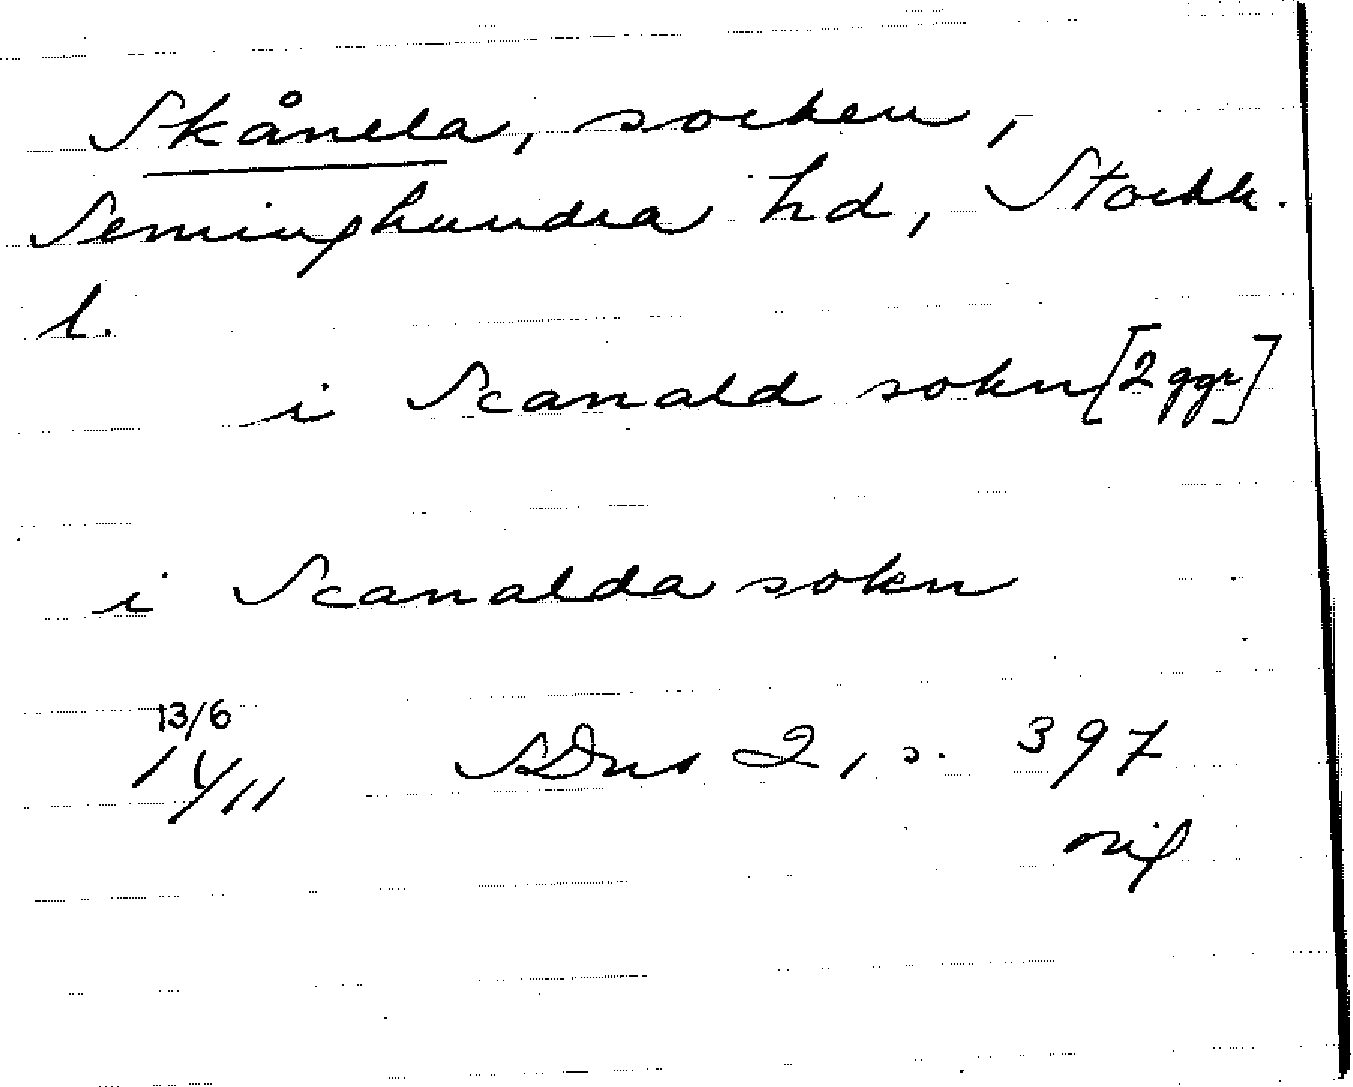 Skånela, socken,
Seminghundra hd, Stockh.
l.
i Scanald sokn [2 ggr]
i Scanalda sokn
13/6
1 1/11 SDns 2, s. 397
orig